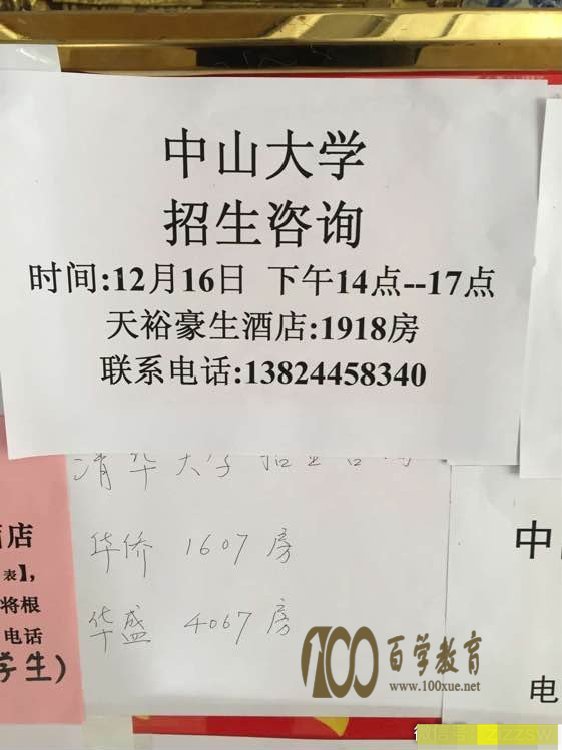 中山大学
招生咨询
时间:12月16日 下午14点--17点
天裕豪生酒店:1918房
联系电话:13824458340
清华大学招生咨询
华侨 1607房
华盛 4067房
店
表】,
将根
电话
学生)
中
电
100 百学教育
www.100xue.net
微信号: zjzzsw